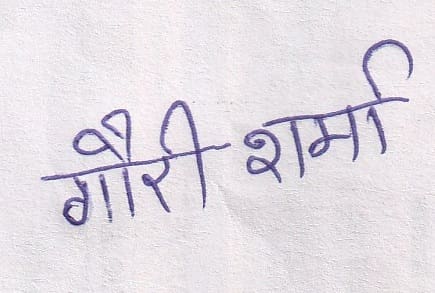 गौरी शर्मा